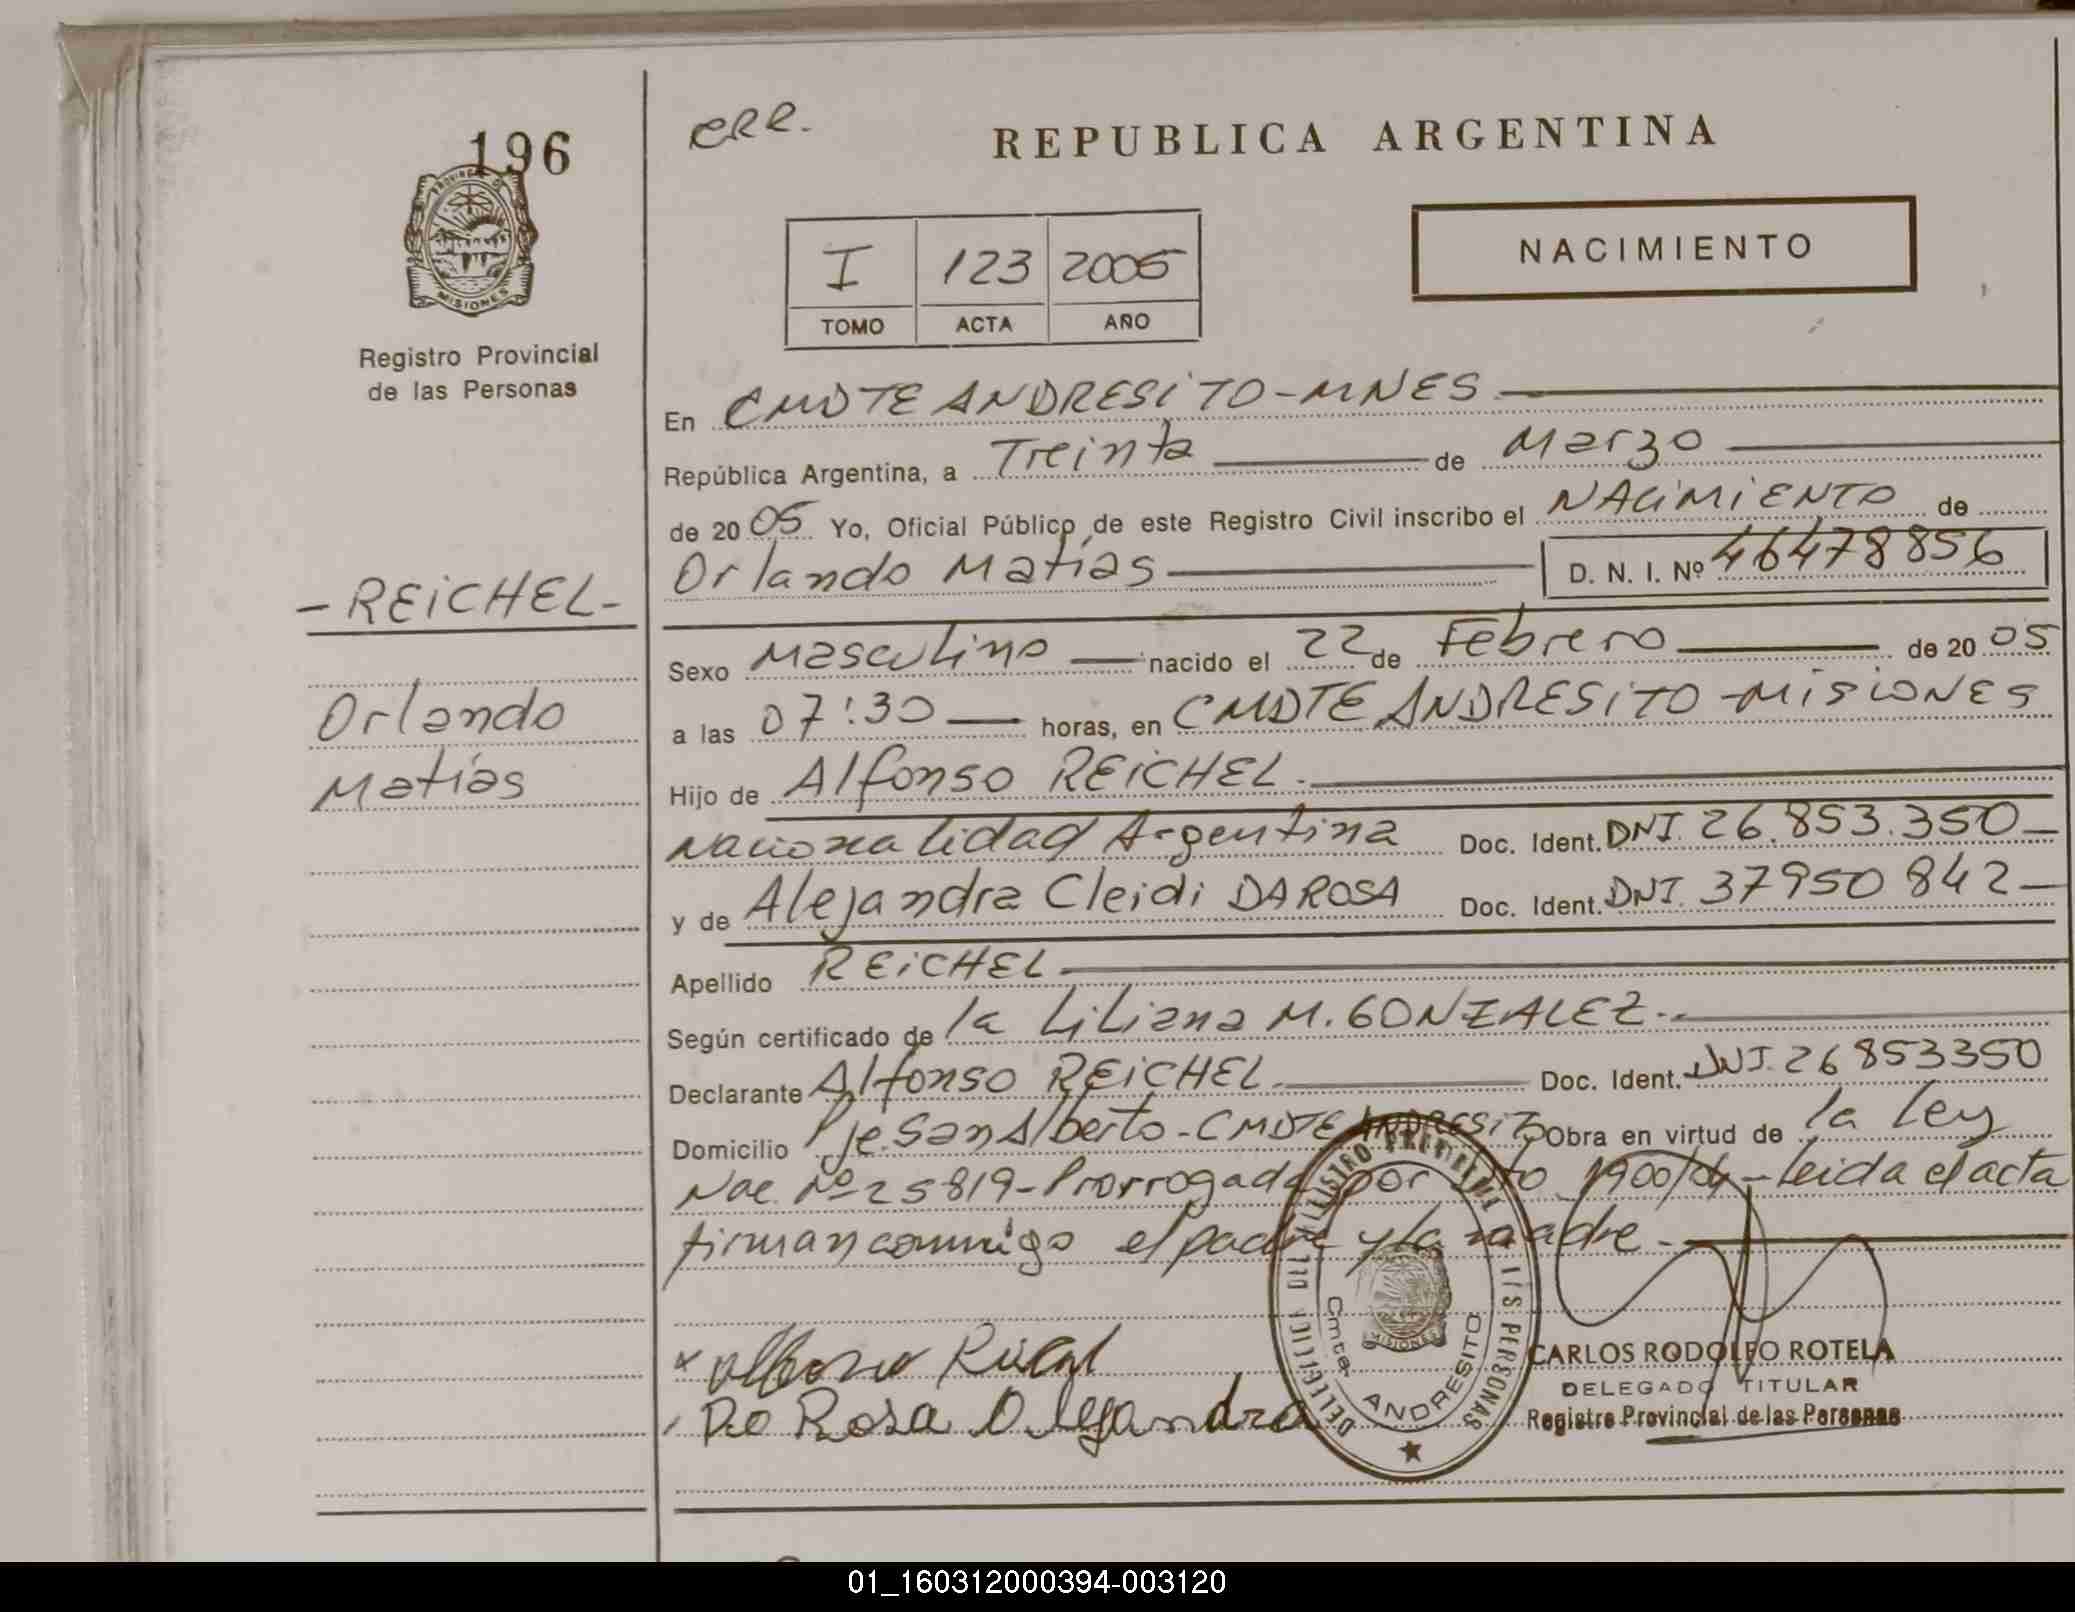 196
PROVINCIA DE
MISIONES
Registro Provincial
de las Personas
- REICHEL -
Orlando
Matías
CRR.
REPUBLICA ARGENTINA
NACIMIENTO
I 123 2005
TOMO ACTA AÑO
En CMDTE ANDRESITO - MNES
República Argentina, a Treinta de Marzo
de 2005 Yo, Oficial Público de este Registro Civil inscribo el NACIMIENTO de
Orlando Matías D. N. I. Nº 46478856
Sexo Masculino nacido el 22 de Febrero de 2005
a las 07:30 horas, en CMDTE ANDRESITO - MISIONES
Hijo de Alfonso REICHEL.
Nacionalidad Argentina Doc. Ident. DNI. 26.853.350
y de Alejandra Cleidi DA ROSA Doc. Ident. DNI. 37950842
Apellido REICHEL
Según certificado de la Liliana M. GONZALEZ.
Declarante Alfonso REICHEL. Doc. Ident. DNI. 26853350
Domicilio Pje. San Alberto - CMDTE ANDRESITO Obra en virtud de la Ley
Nac. Nº 25819 - Prorrogada por Dto 1900/04 - Leida el acta
firman conmigo el padre y la madre.
Da Rosa Alejandra
Cmte. ANDRESITO
MISIONES
CARLOS RODOLFO ROTELA
DELEGADO TITULAR
Registro Provincial de las Personas
01_160312000394-003120